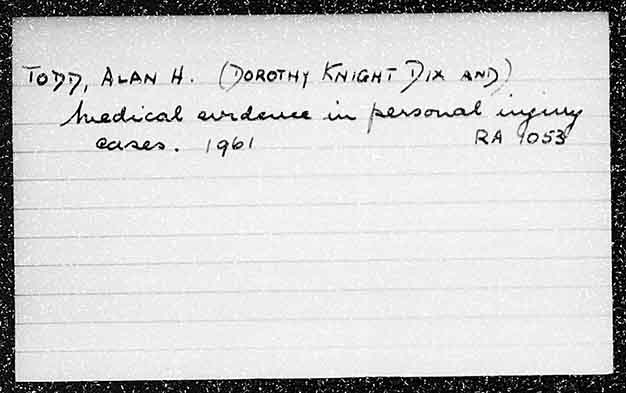 TODD, ALAN H. (DOROTHY KNIGHT DIX AND)
Medical evidence in personal injury
cases. 1961 RA 1053